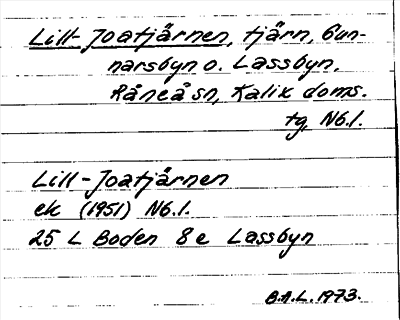 Lill-Joatjärnen, tjärn, Gun-
narsbyn o. Lassbyn,
Råneå sn, Kalix doms.
tg, Nb.l.
Lill-Joatjärnen
ek (1951) Nb.l.
25 L Boden 8e Lassbyn
B.A.L. 1973.